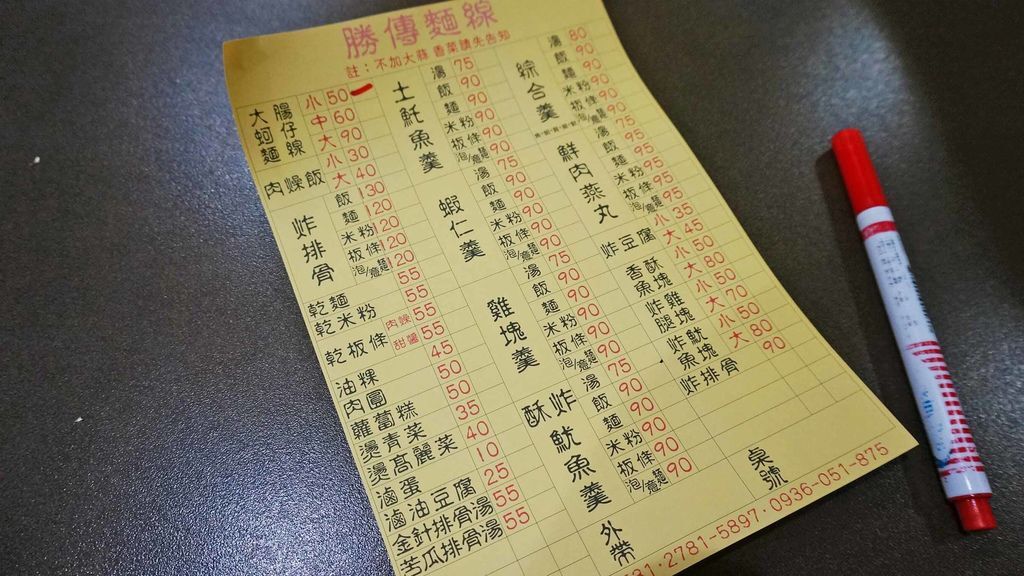 勝傳麵線
註：不加大蒜 香菜請先告知
大腸蚵仔麵線 小 50
中 60
大 90
肉燥飯 小 30
大 40
炸排骨 飯 130
麵 120
米粉 120
板條 120
泡/意麵 120
乾麵 55
乾米粉 55
乾板條 肉燥 甜醬 55
油粿 45
肉圓 50
蘿蔔糕 50
燙青菜 35
燙高麗菜 40
滷蛋 10
滷油豆腐 25
金針排骨湯 55
苦瓜排骨湯 55
土魠魚羹 湯 75
飯 90
麵 90
米粉 90
板條 90
泡/意麵 90
蝦仁羹 湯 75
飯 90
麵 90
米粉 90
板條 90
泡/意麵 90
雞塊羹 湯 75
飯 90
麵 90
米粉 90
板條 90
泡/意麵 90
酥炸魷魚羹 湯 75
飯 90
麵 90
米粉 90
板條 90
泡/意麵 90
綜合羹 湯 80
飯 90
麵 90
米粉 90
板條 90
泡/意麵 90
鮮肉燕丸 湯 75
飯 95
麵 95
米粉 95
板條 95
泡/意麵 95
炸豆腐 小 35
大 45
香酥魚塊 小 50
大 80
炸雞腿塊 小 50
大 70
炸魷魚塊 小 50
大 80
炸排骨 90
外帶
桌號
2781-5897·0936-051-875